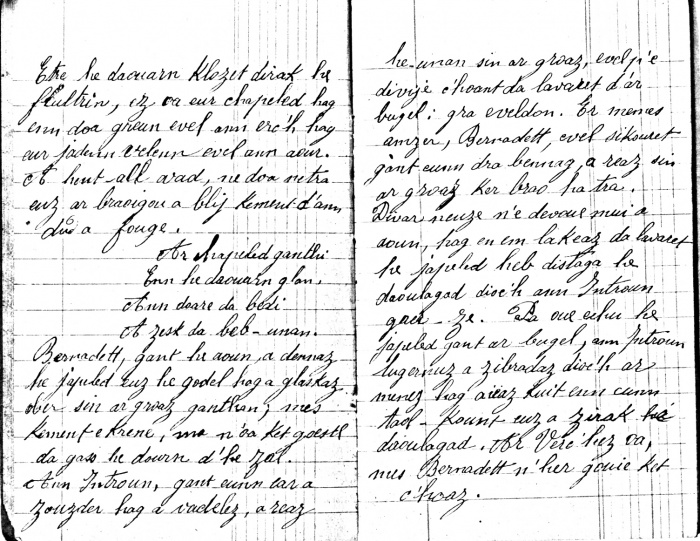 Etre he daouarn klozet dirak he
feultrin, ez oa eur chapeled hag
enn doa greun evel ann erc'h hag
eur jadenn velenn evel ann aour.
A hent all avad, ne doa netra
euz ar braoigou a blij kement d'ann
dud a fouge.
Ar chapeled ganthi
Enn he daouarn glan,
Ann doare da bedi
A zesk da beb-unan.
Bernadett, gant he aoun, a dennaz
he japeled euz he godel hag a glaskaz
ober sin ar groaz ganthan; mes
kement e krene, ma n'oa ket goest
da gass he dourn d'he zal.
Ann Introun, gant eunn ear a
zouzder hag a vadelez, a reaz
he-unan sin ar groaz, evel p'e
divije c'hoant da lavaret d'ar
bugel: gra eveldon. Er memes
amzer, Bernadett, evel sikouret
gant eunn dra bennag, a reaz sin
ar groaz ker brao ha tra.
Divar neuze n'e devoue mui a
aoun, hag en em lakeaz da lavaret
he japeled heb distaga he
daoulagad dioc'h ann Introun
gaer-ze. Pa oue echu he
japeled gant ar bugel, ann Introun
lugernuz a zibradaz dioc'h ar
menez hag aieaz kuit enn eunn
taol-kount euz a zirak he
daoulagad. Ar Verc'hez oa,
mes Bernadett n'her gouie ket
c'hoaz.